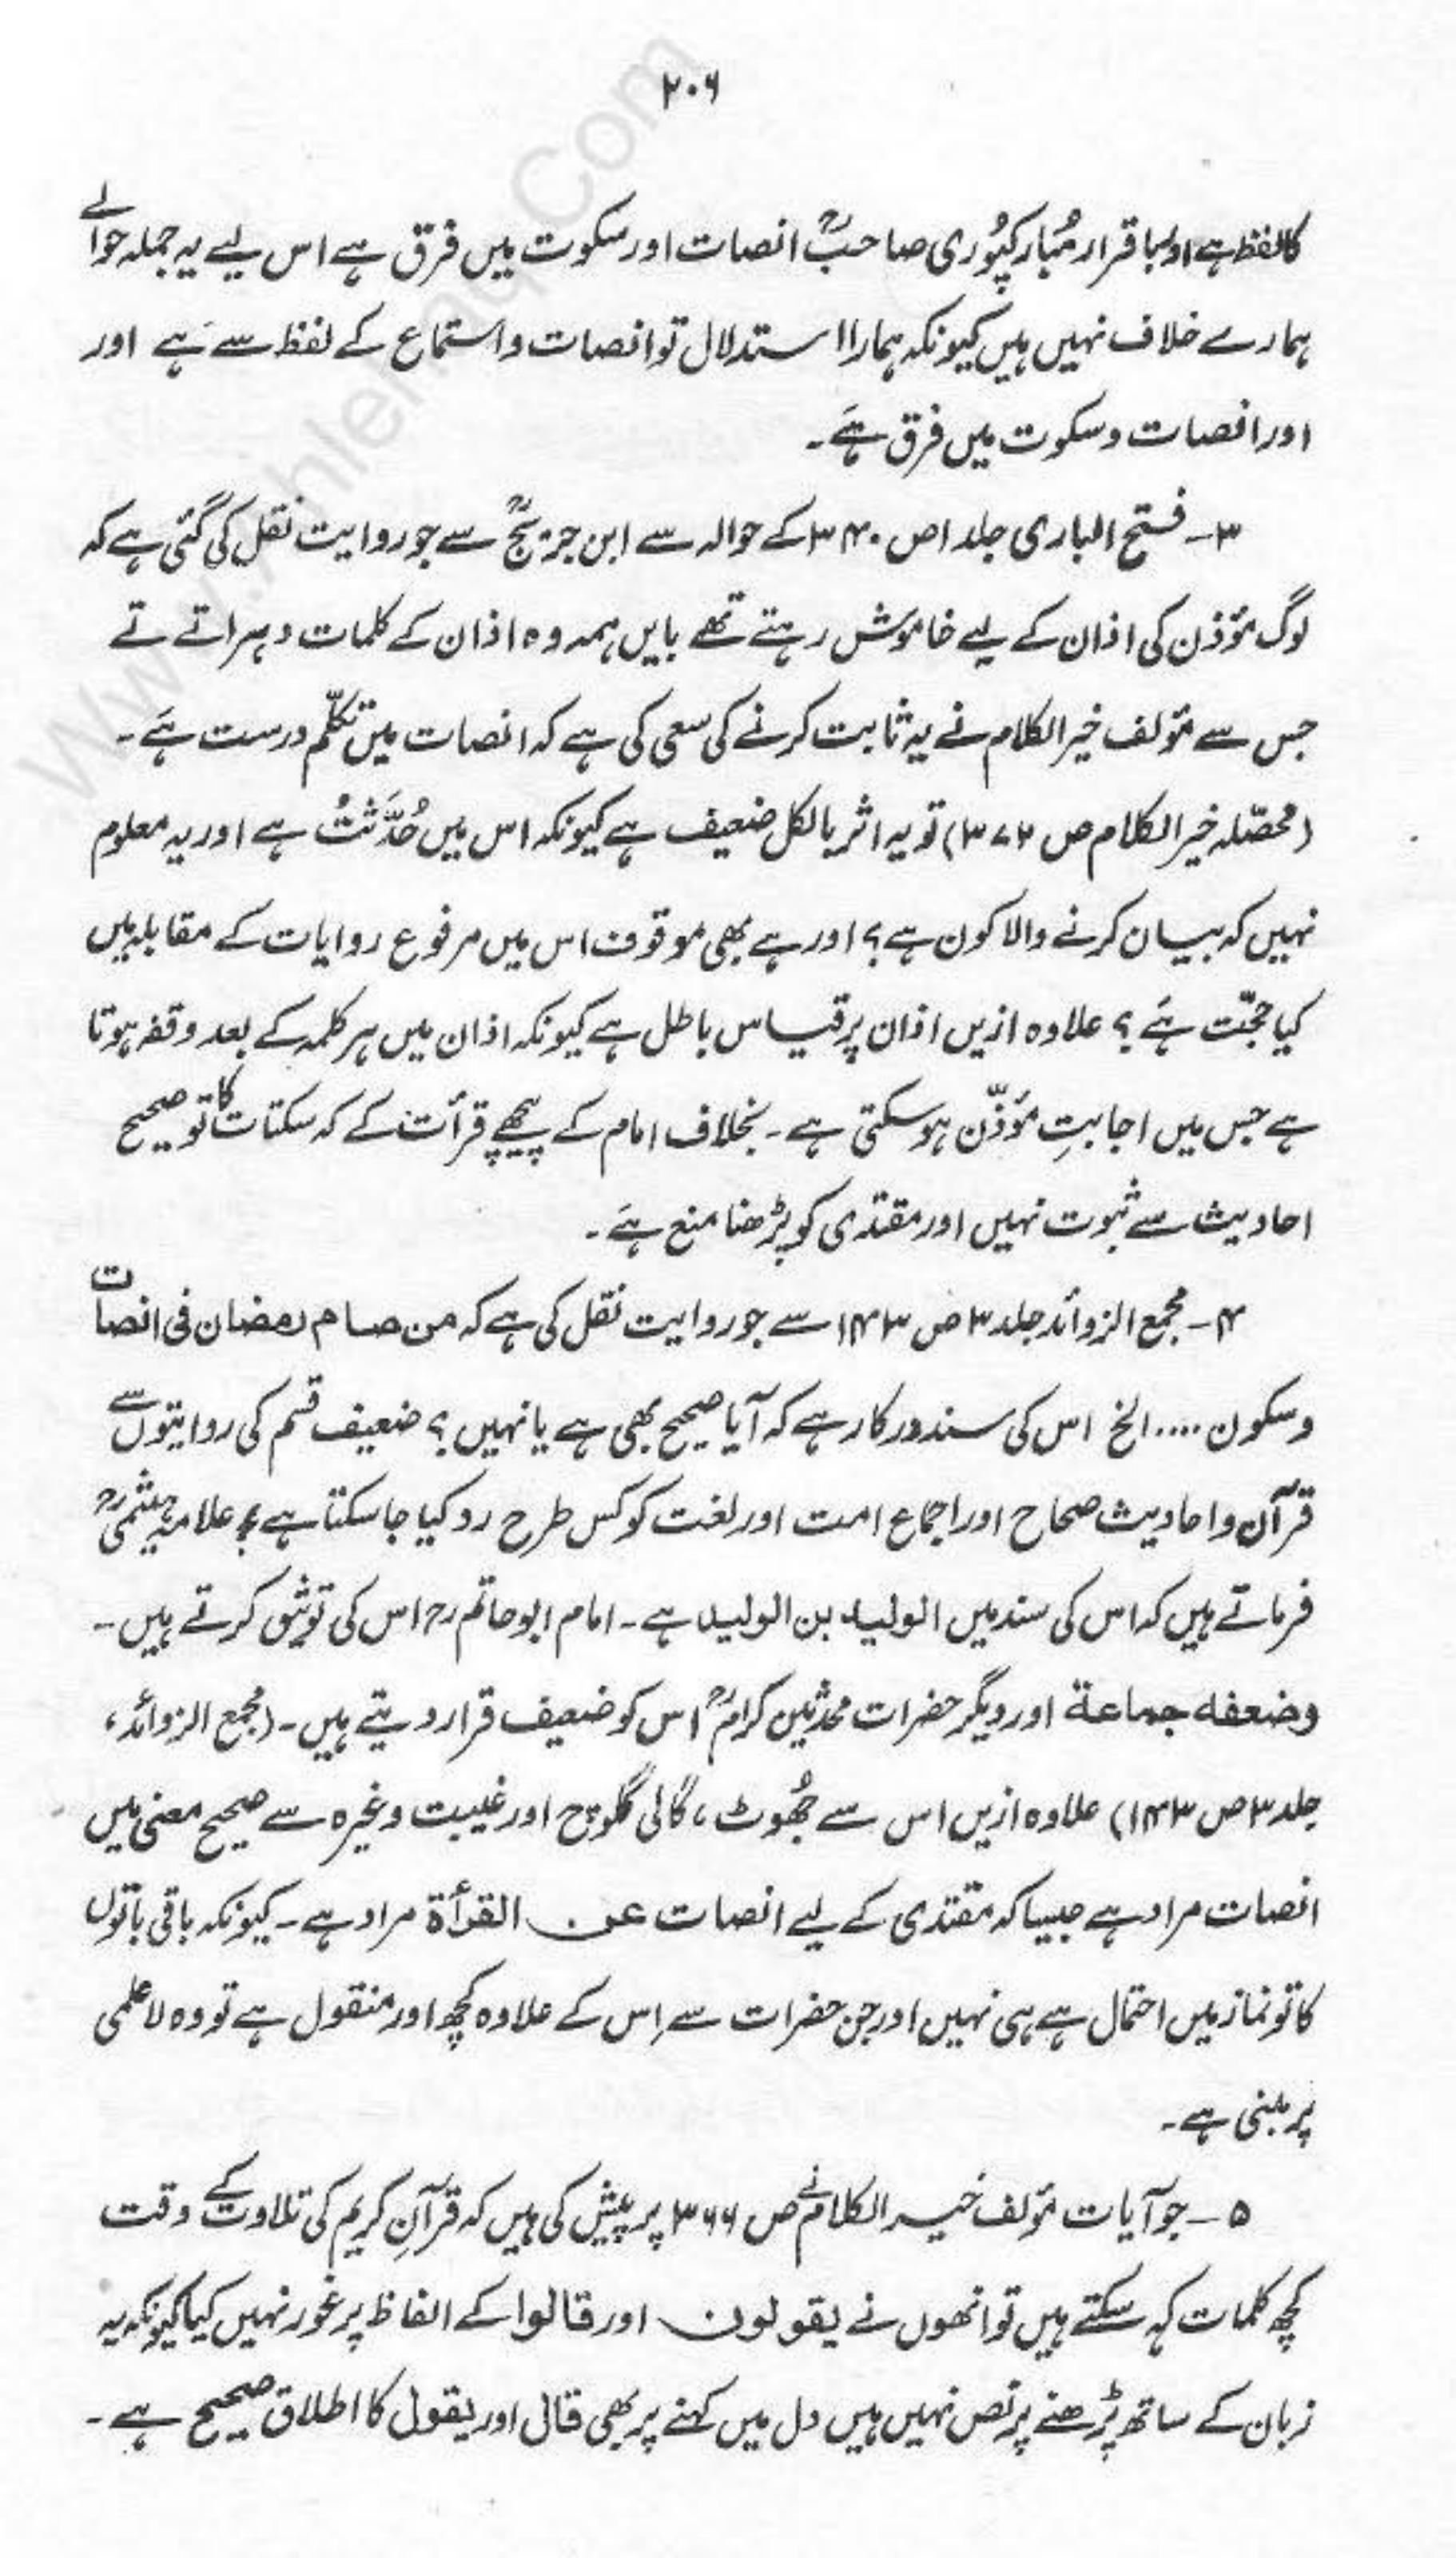 ۲۰۶
کا لفظ ہے اور باقرار مُبارکپُوری صاحبؒ انصات اور سکوت میں فرق ہے اس لیے یہ جملہ حوالے
ہمارے خلاف نہیں ہیں کیونکہ ہمارا استدلال تو انصات و استماع کے لفظ سے ہَے اور
اور انصات و سکوت میں فرق ہَے۔
۳۔ فتح الباری جلد ۱ ص ۳۴۰ کے حوالہ سے ابن جریجؒ سے جو روایت نقل کی گئی ہے کہ
لوگ مؤذن کی اذان کے لیے خاموش رہتے تھے بایں ہمہ وہ اذان کے کلمات دہراتے تے
جس سے مؤلف خیر الکلام نے یہ ثابت کرنے کی سعی کی ہے کہ انصات میں تکلّم درست ہَے۔
(محصّلہ خیر الکلام ص ۳۷۲) تو یہ اثر بالکل ضعیف ہے کیونکہ اس میں حُدِّثتُ ہے اور یہ معلوم
نہیں کہ بیان کرنے والا کون ہے؟ اور ہے بھی موقوف اس میں مرفوع روایات کے مقابلہ میں
کیا حجّت ہَے؟ علاوہ ازیں اذان پر قیاس باطل ہے کیونکہ اذان میں ہر کلمہ کے بعد وقفہ ہوتا
ہے جس میں اجابتِ مؤذّن ہو سکتی ہے۔ بخلاف امام کے پیچھے قرأت کے کہ سکتات کا تو صحیح
احادیث سے ثبوت نہیں اور مقتدی کو پڑھنا منع ہَے۔
۴۔ مجمع الزوائد جلد ۳ ص ۱۴۳ سے جو روایت نقل کی ہے کہ من صام رمضان فی انصات
و سکون .... الخ اس کی سند درکار ہے کہ آیا صحیح بھی ہے یا نہیں؟ ضعیف قسم کی روایتوں سے
قرآن و احادیث صحاح اور اجماع امت اور لغت کو کس طرح رد کیا جا سکتا ہے؟ علامہ ہیثمیؒ
فرماتے ہیں کہ اس کی سند میں الولید بن الولید ہے۔ امام ابو حاتم رح اس کی توثیق کرتے ہیں۔
وضعفہ جماعة اور دیگر حضرات محدثین کرامؒ اس کو ضعیف قرار دیتے ہیں۔ (مجمع الزوائد،
جلد ۳ ص ۱۴۳) علاوہ ازیں اس سے جُھوٹ، گالی گلوچ اور غیبت وغیرہ سے صحیح معنی میں
انصات مراد ہے جیسا کہ مقتدی کے لیے انصات عن القرأة مراد ہے۔ کیونکہ باقی باتوں
کا تو نماز میں احتمال ہے ہی نہیں اور جن حضرات سے اِس کے علاوہ کچھ اور منقول ہے تو وہ لاعلمی
پر مبنی ہے۔
۵۔ جو آیات مؤلف خیر الکلام نے ص ۳۶۶ پر پیش کی ہیں کہ قرآنِ کریم کی تلاوت کے وقت
کچھ کلمات کہہ سکتے ہیں تو انھوں نے یقولون اور قالوا کے الفاظ پر غور نہیں کیا کیونکہ یہ
زبان کے ساتھ پڑھنے پر نص نہیں ہیں دل میں کہنے پر بھی قال اور یقول کا اطلاق صحیح ہے۔
www.Ahlehaq.Com